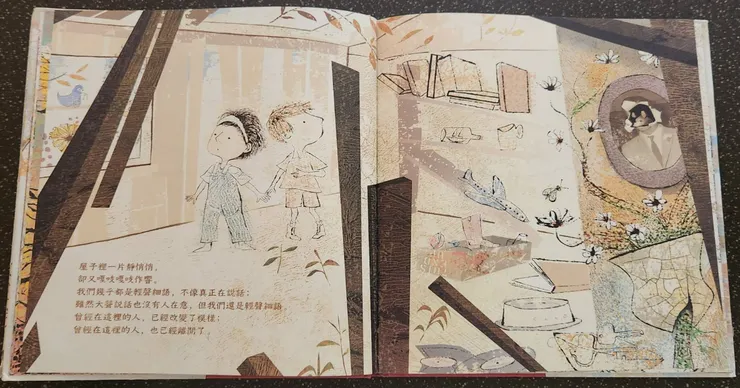 屋子裡一片靜悄悄，
卻又嘎吱嘎吱作響，
我們幾乎都是輕聲細語，不像真正在說話；
雖然大聲說話也沒有人在意，但我們還是輕聲細語
曾經在這裡的人，已經改變了模樣；
曾經在這裡的人，也已經離開了。